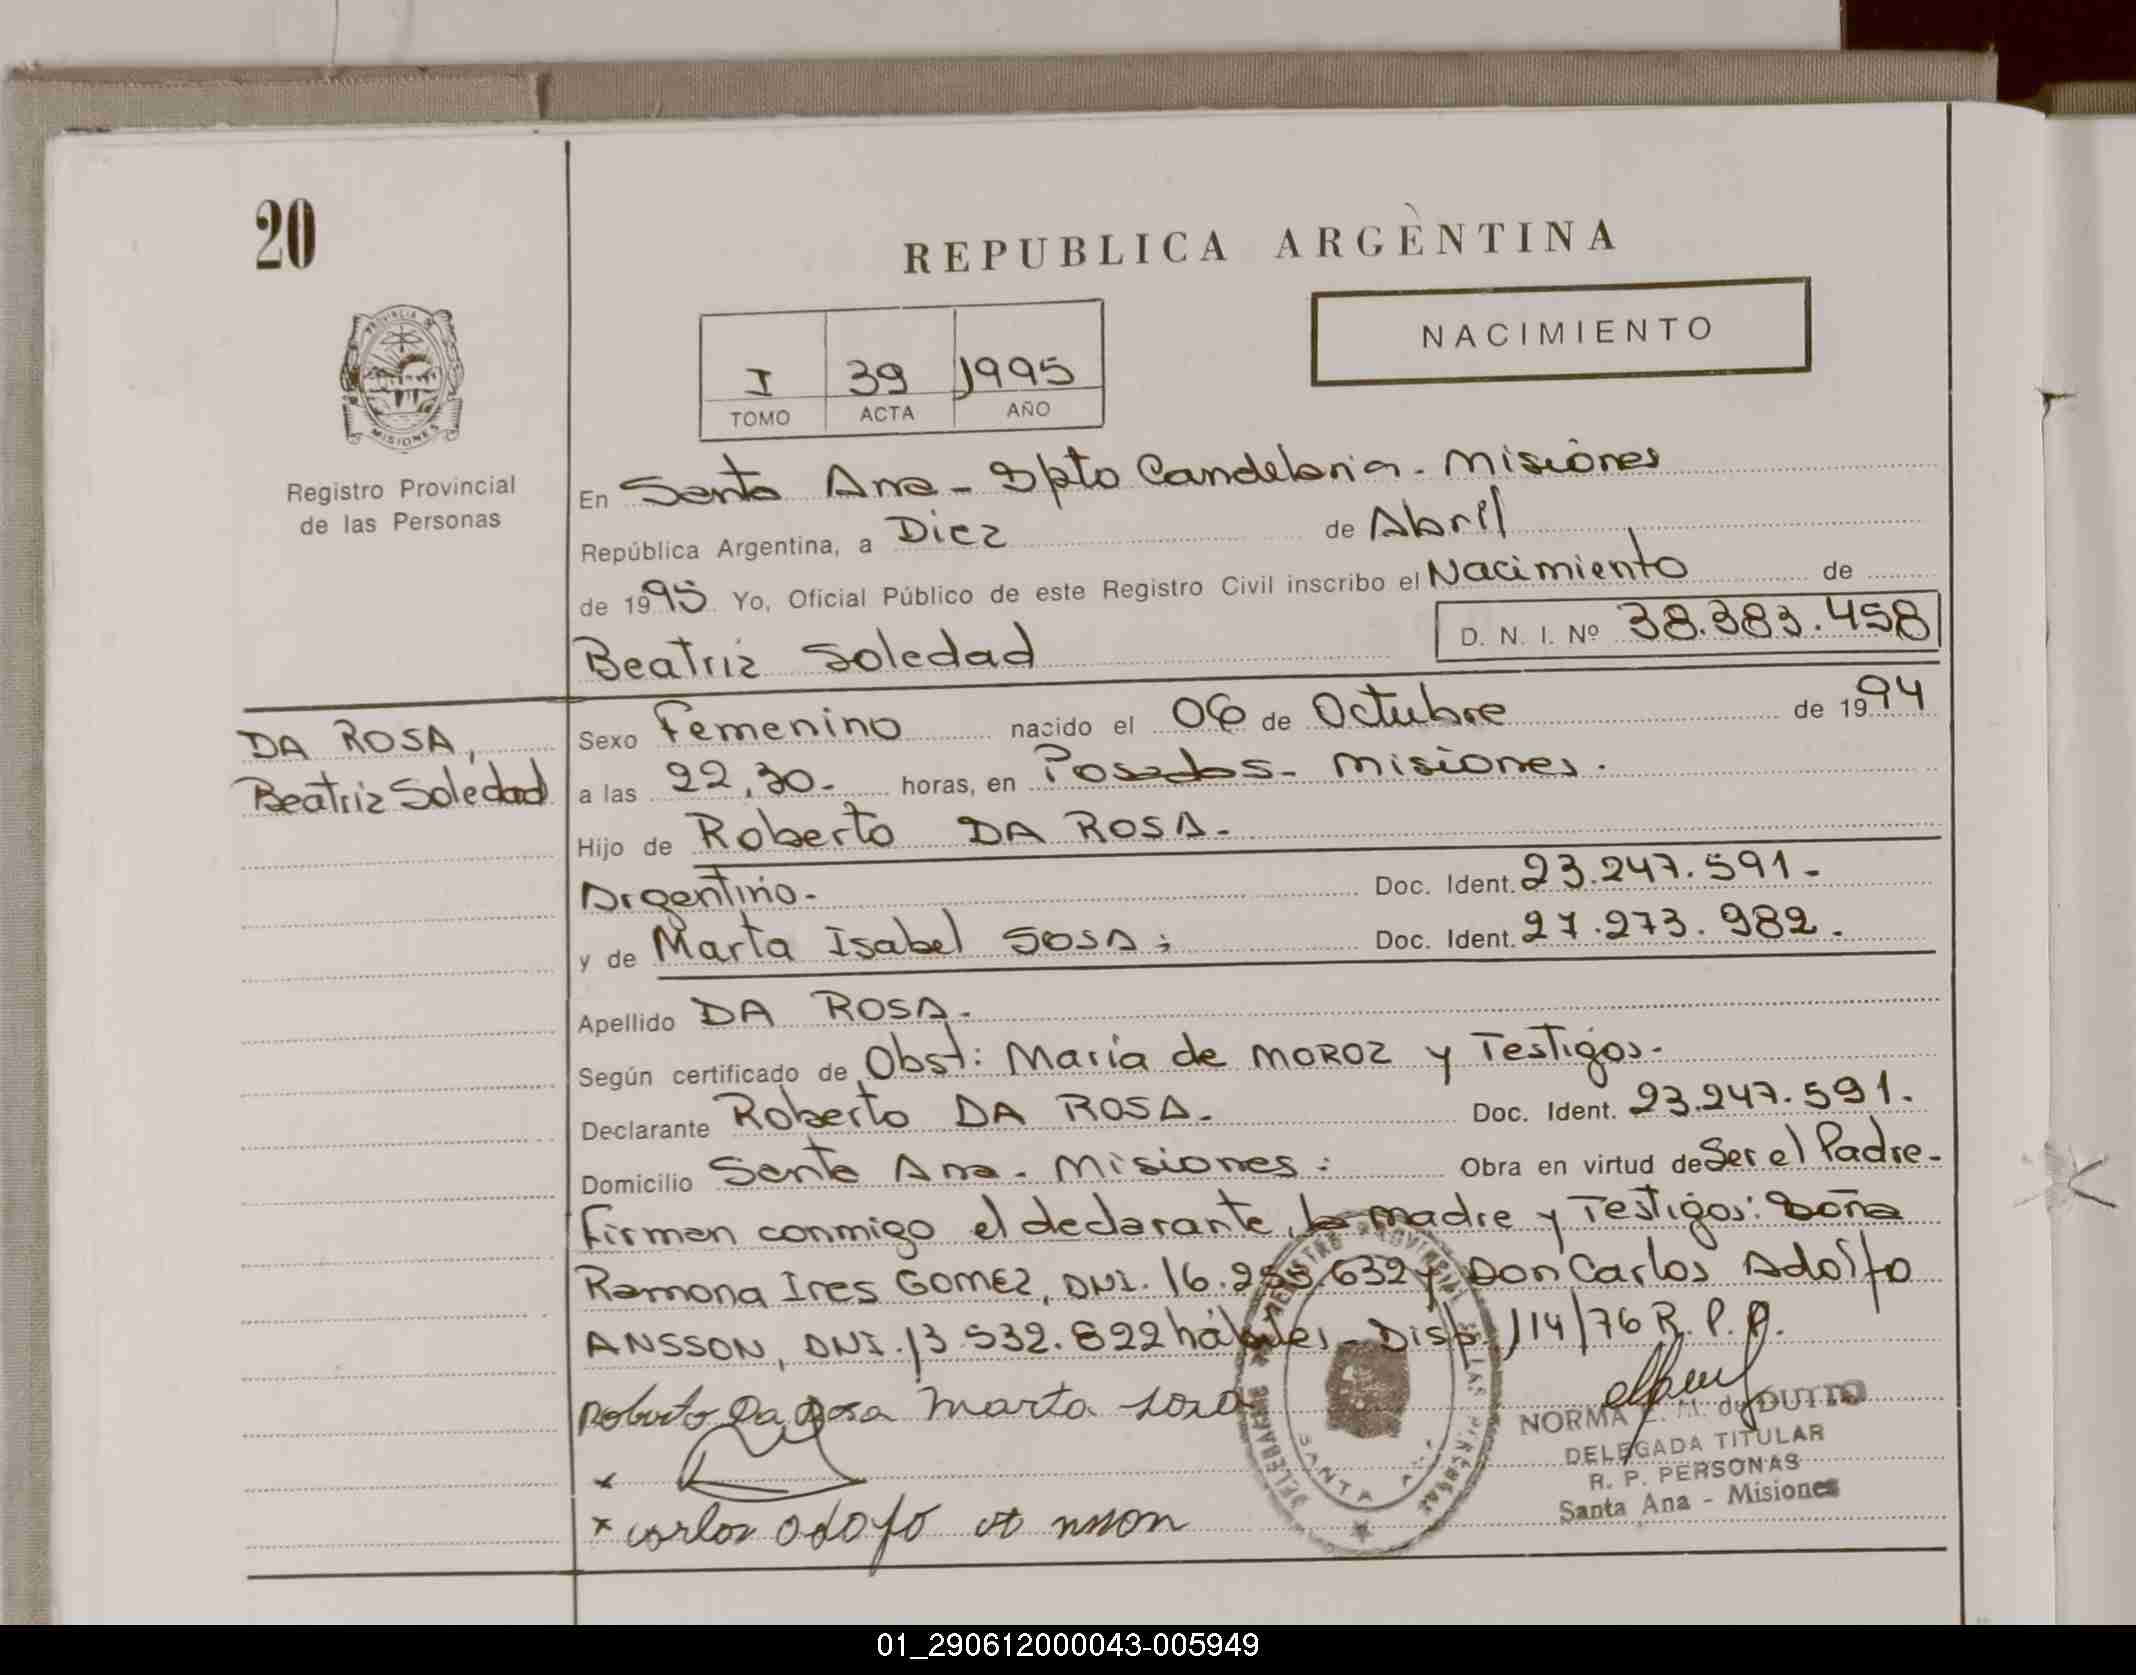 20
REPUBLICA ARGENTINA
NACIMIENTO
I 39 1995
TOMO ACTA AÑO
PROVINCIA DE MISIONES
Registro Provincial
de las Personas
En Santa Ana - Dpto Candelaria - Misiones
República Argentina, a Diez de Abril
de 1995 Yo, Oficial Público de este Registro Civil inscribo el Nacimiento de
Beatriz Soledad D. N. I. Nº 38.383.458
DA ROSA,
Beatriz Soledad
Sexo Femenino nacido el 06 de Octubre de 1994
a las 22,30.- horas, en Posadas - Misiones.
Hijo de Roberto DA ROSA.-
Argentino.- Doc. Ident. 23.247.591.-
y de Marta Isabel SOSA; Doc. Ident. 27.273.982.-
Apellido DA ROSA.-
Según certificado de Obst: María de MOROZ y Testigos.-
Declarante Roberto DA ROSA.- Doc. Ident. 23.247.591.-
Domicilio Santa Ana - Misiones: Obra en virtud de Ser el Padre.-
Firman conmigo el declarante, la madre y Testigos: Doña
Ramona Ires GOMEZ, DNI. 16. 632 y Don Carlos Adolfo
ANSSON, DNI. 13.532.822 hábiles - Disp. 114/76 R.P.P.
Roberto Da Rosa Marta Sosa
REGISTRO PROVINCIAL DE LAS PERSONAS
SANTA ANA
NORMA de DUTTO
DELEGADA TITULAR
R. P. PERSONAS
Santa Ana - Misiones
x
x Carlos Adolfo
01_290612000043-005949